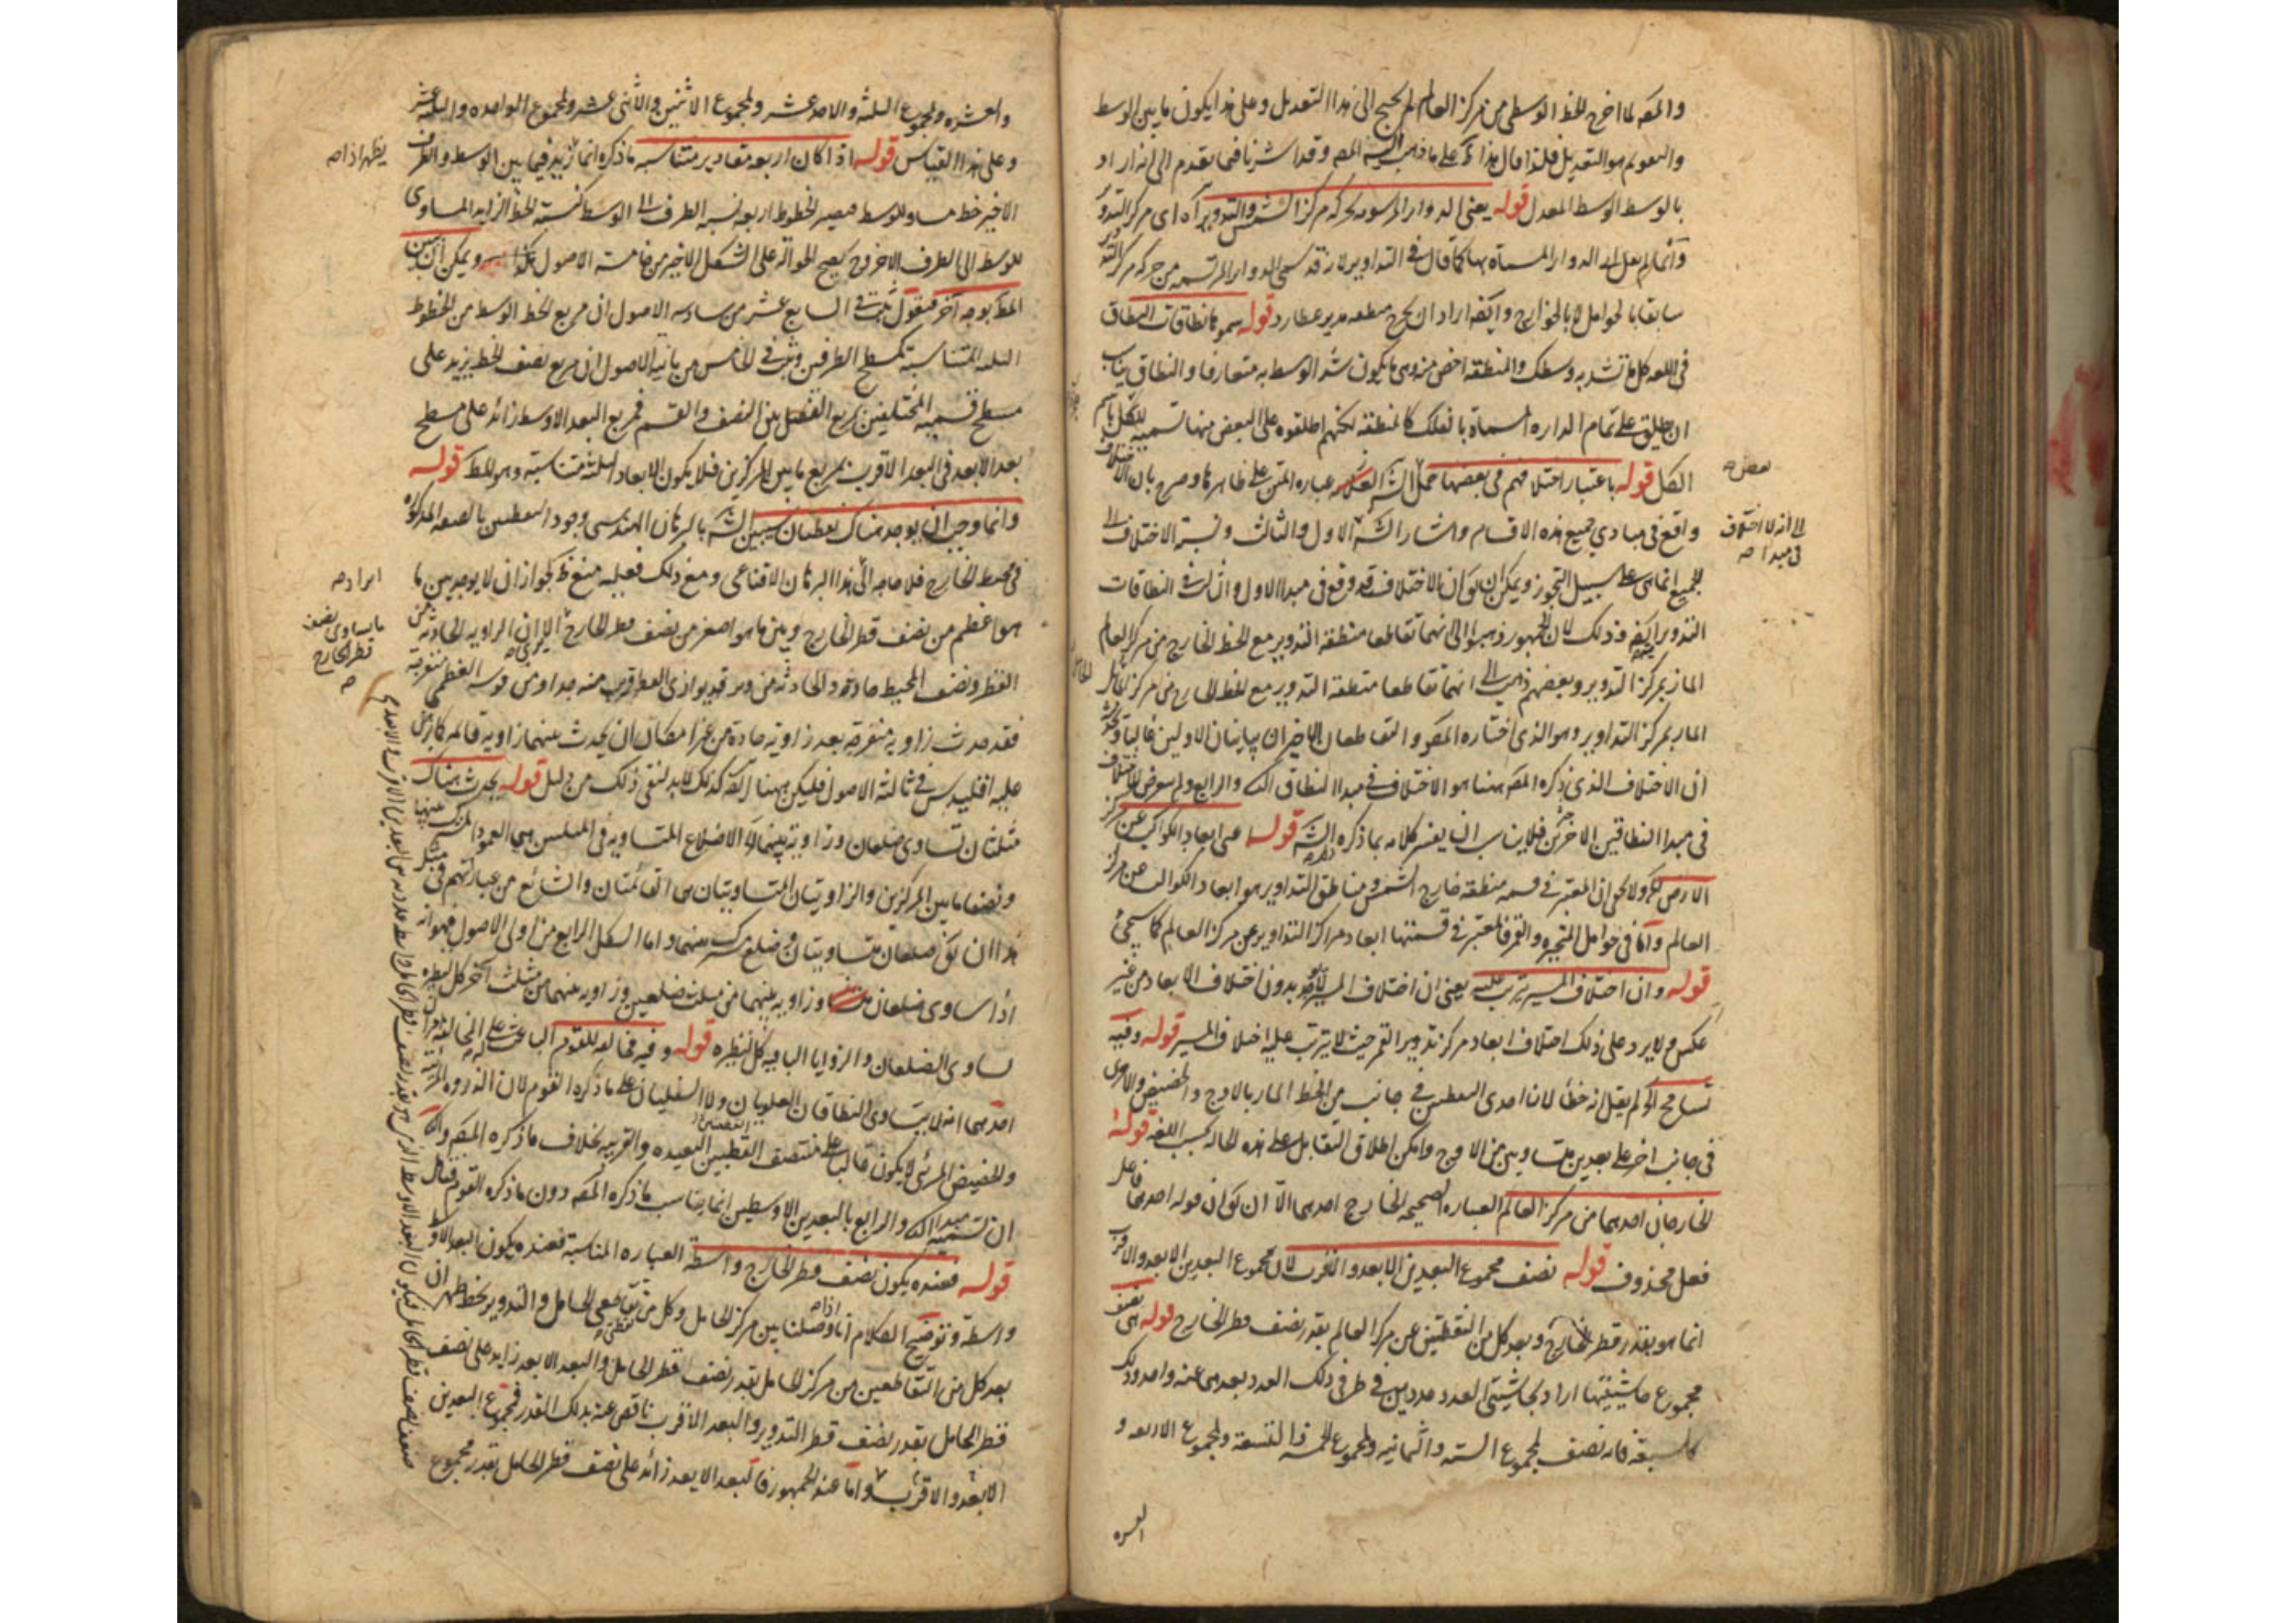 والمص لما اخرج الخط الوسطى من مركز العالم لم يحتج الى هذا التعديل وعلى هذا يكون ما بين الوسط
والتقويم هو التعديل فلذا قال هذا على ما ذهب اليه المص وقد اشرنا فيما تقدم الى انه اراد
بالوسط الوسط المعدل قوله يعنى الدوائر المرسومة بحركة مركز الشمس والتدوير آه اى مركز التدوير
وانما لم يقل ان الدوائر المسماة بها كما قال فى التداوير لانه قد سمى الدوائر المرتسمة من حركة مركز التدوير
سابقا بالحوامل لا بالخوارج وايضا اراد ان يخرج منطقة مدير عطارد قوله سموها نطاقات النطاق
فى اللغة كل ما تشد به وسطك والمنطقة اخص منه وهى ما يكون شد الوسط به متعارفا والنطاق يناسب
ان يطلق على تمام الدائرة المسماة بالفلك كالمنطقة لكنهم اطلقوه على البعض منها تسمية للكل باسم
الكل قوله باعتبار اختلافهم فى بعضها حمل الش العلامة عبارة المتن على ظاهرها وصرح بان الاختلاف
واقع فى مبادى جميع هذه الاقسام واشار الش الاول والثالث ونسبة الاختلاف الى
الجميع انما هى على سبيل التجوز ويمكن ان يكون الاختلاف قد وقع فى مبدا الاول والثالث فى النطاقات
التدويرية ايضا وذلك لان الجمهور ذهبوا الى انهما تقاطعا منطقة التدوير مع الخط الخارج من مركز العالم
المار بمركز التدوير وبعضهم ذهب الى انهما تقاطعا منطقة التدوير مع الخط الخارج من مركز الحامل
المار بمركز التداوير وهو الذى اختاره المص والتقاطعان الاخيران يباينان الاولين غالبا
ان الاختلاف الذى ذكره المص ههنا هو الاختلاف فى مبدا النطاق الثانى والرابع ولم يتعرض للاختلاف
فى مبدا النطاقين الاخرين فلا يناسب ان يفسر كلامه بما ذكره الش قوله اعنى ابعاد الكواكب عن مركز
الارض لا يخفى ان المعتبر فى قسمة منطقة خارج الشمس ومناطق التداوير هو ابعاد الكواكب عن مركز
العالم واما فى حوامل المتحيرة والقمر فالمعتبر فى قسمتها ابعاد مراكز التداوير عن مركز العالم كما سيجئ
قوله وان اختلاف المسير يترتب عليه يعنى ان اختلاف المسير لا يوجد بدون اختلاف الابعاد من غير
عكس ولا يرد على ذلك اختلاف ابعاد مركز تدوير القمر حيث لا يترتب عليه اختلاف المسير قوله وفيه
تسامح لم يقل انه خطأ لان احدى النقطتين فى جانب من الخط المار بالاوج والحضيض والاخرى
فى جانب اخر على بعدين متساويين من الاوج وامكن اطلاق التقابل على هذه الحالة بحسب اللغة قوله
الخارجان احدهما من مركز العالم العبارة الصحيحة الخارج احدهما الا ان يكون قوله احدهما فاعل
فعل محذوف قوله نصف مجموع البعدين الابعد والاقرب لان مجموع البعدين الابعد والاقرب
انما هو بقدر قطر الخارج وبعد كل من النقطتين عن مركز العالم بقدر نصف قطر الخارج قوله هى نصف
مجموع حاشيتيها اراد بحاشيتى العدد عددين فى طرفى ذلك العدد بعدهما عنه واحد وذلك
كالسبعة فانه نصف لمجموع الستة والثمانية ولمجموع الخمسة والتسعة ولمجموع الاربعة و
العشرة
بعض صح
الى انه لا اختلاف
فى مبدا صح
والعشرة ولمجموع الثلثة والاحد عشر ولمجموع الاثنين والاثنى عشر ولمجموع الواحدة والثلثة عشر
وعلى هذا القياس قوله اذا كان اربعة مقادير متناسبة ما ذكره انما يزيد فيما بين الوسط والطرف
الاخير خط مساو للوسط فيصير الخطوط اربعة نسبة الطرف الى الوسط كنسبة الخط الزايد المساوى
للوسط الى الطرف الاخر وح يصح الحوالة على الشكل الاخير من خامسة الاصول هكذا ويمكن ان يبين
المط بوجه آخر فنقول ثبت فى السابع عشر من سادسة الاصول ان مربع الخط الوسط من الخطوط
الثلثة المتناسبة كمسطح الطرفين وثبت فى الخامس من ثانية الاصول ان مربع نصف الخط يزيد على
مسطح قسميه المختلفين بمربع الفضل بين النصف والقسم فمربع البعد الاوسط زائد على مسطح
بعد الابعد فى البعد الاقرب بمربع ما بين المركزين فلا يكون الابعاد الثلثة متناسبة وهو المط قوله
وانما وجب ان يوجد هناك نقطتان سيبين الش بالبرهان الهندسى وجود النقطتين بالصفة المذكورة
فى محيط الخارج فلا حاجة الى هذا البرهان الاقناعى ومع ذلك فعليه منع ظ لجواز ان لا يوجد بين ما
هو اعظم من نصف قطر الخارج وبين ما هو اصغر من نصف قطر الخارج الا يرى ان الزاوية الحادثة من
القطر ونصف المحيط حادة
فقد حدث زاوية منفرجة بعد زاوية حادة من غير امكان ان يحدث بينهما زاوية قائمة كما برهن
عليه اقليدس فى ثالثة الاصول فليكن ههنا ايضا كذلك لا بد لنفى ذلك من دليل قوله يحدث هناك
مثلثان تساوى ضلعان وزاوية بينهما الاضلاع المتساوية فى المثلثين هى العمود المشترك بينهما
ونصفا ما بين المركزين والزاويتان المتساويتان هى القائمتان والشائع من عباراتهم فى مثل
هذا ان يكون ضلعان متساويتان وضلع مشترك بينهما واما الشكل الرابع من اولى الاصول فهو انه
اذا ساوى ضلعان وزاوية بينهما من مثلث ضلعين وزاوية بينهما من مثلث اخر كل لنظيره
تساوى الضلعان والزوايا الباقية كل لنظيره قوله وفيه مخالفة للقوم الباعث على المخالفة
احدهما انه لا يتساوى النطاقان العلويان ولا السفليان على ما ذكره القوم لان الذروة المرئية
والحضيض المرئى لا يكون غالبا على منتصف القطبين البعيدة والقريبة بخلاف ما ذكره المص والثانى
ان تسمية مبدا الثانى والرابع بالبعدين الاوسطين انما يناسب ما ذكره المص دون ما ذكره القوم
قوله فعنده يكون نصف قطر الخارج واسطة العبارة المناسبة فعنده يكون البعد الاوسط
واسطة وتوضيح الكلام انا اذا وصلنا بين مركز الحامل وكل من نقطتى تقاطعى الحامل والتدوير بخط ظهر ان
بعد كل من التقاطعين من مركز الحامل بقدر نصف قطر الحامل والبعد الابعد زايد على نصف
قطر الحامل بقدر نصف قطر التدوير والبعد الاقرب ناقص عنه بذلك القدر فمجموع البعدين
الابعد والاقرب واما عند الجمهور فالبعد الابعد زائد على نصف قطر الحامل بقدر مجموع
يظهر اذا صح
ايراد صح
ما يساوى نصف
قطر الخارج
صح